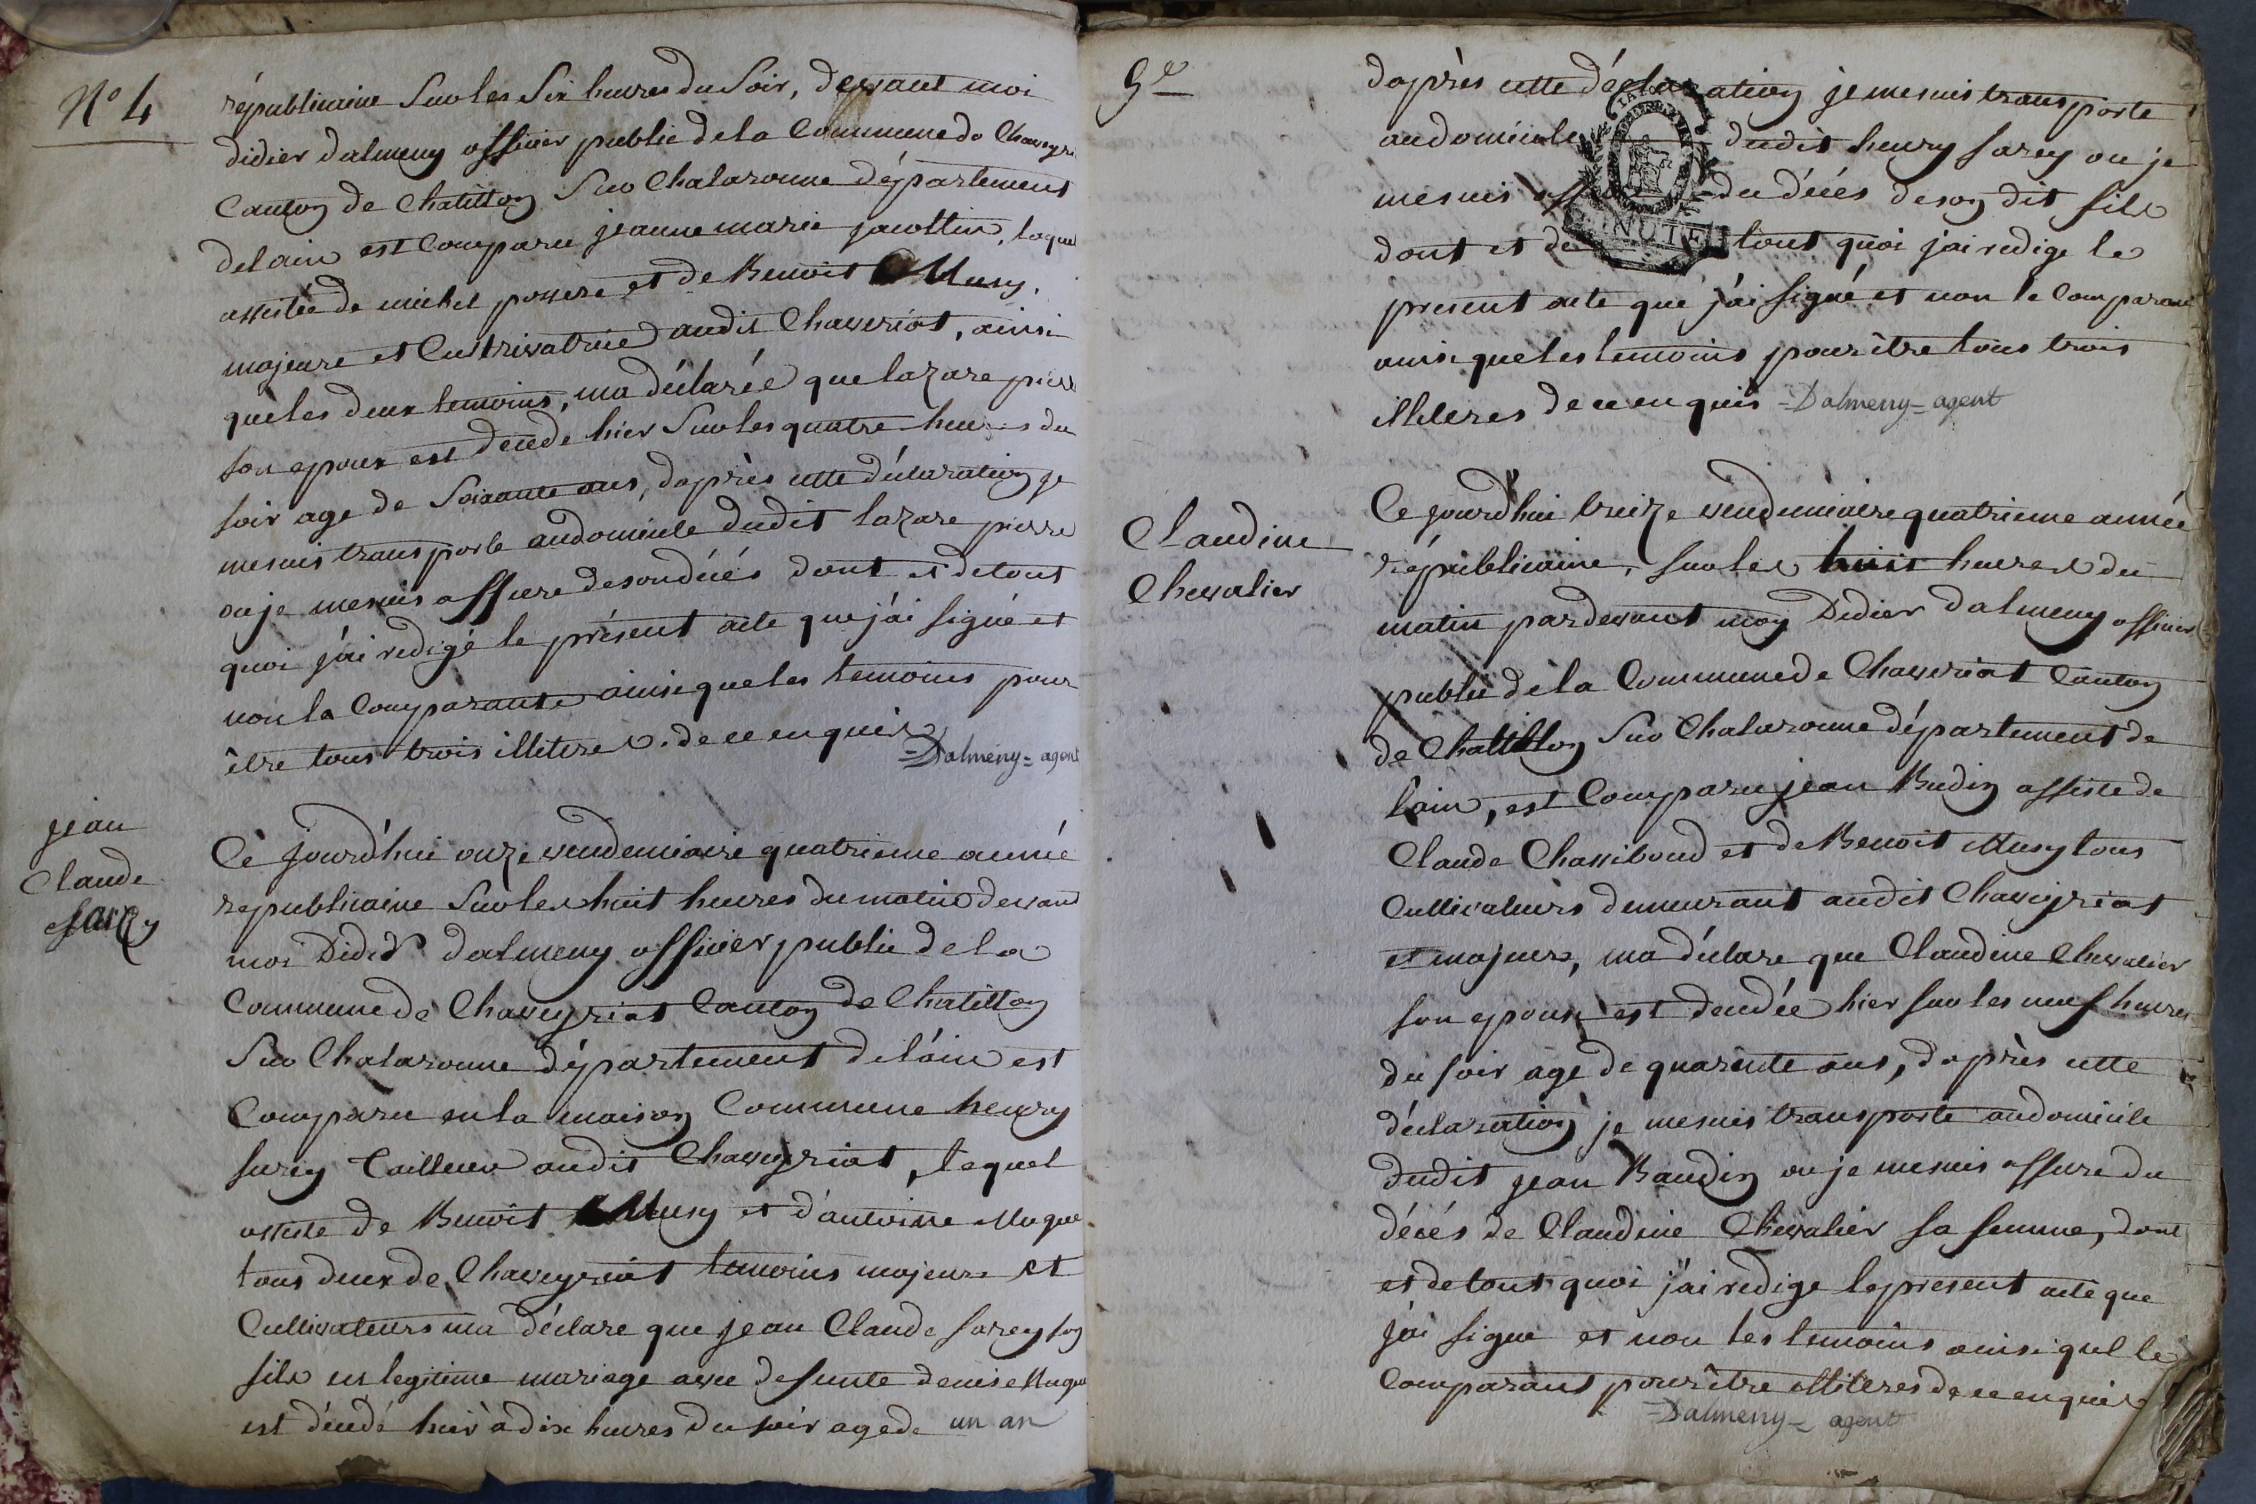 N° 4
républicaine Sur les Six heures du Soir, devant moi
didier dalmeny officier public de la Commune de Chaveyri
Canton de Chatillon Sur Chalaronne département
de lain est Comparu jeanne marie jacottin, laquel
assistée de michel possere et de Benoit Musy,
majeure et Cultrivatrice audit Chaveriat, ainsi
que les deux temoins, ma déclarée que lazare pierre
son epoux est décédé hier Sur les quatre heures du
soir age de Soixante ans, daprès cette déclaration je
me suis transporte au domicile dudit lazare pierre
ou je me suis assure de son décés dont et de tout
quoi j'ai redigé le présent acte que j'ai signé et
non la Comparante ainsi que les temoins pour
être tous trois illiteres. de ce enquis
=Dalmeny= agent
jean
Claude
sarey
Ce jourd'hui onze vendemiaire quatrieme année
republicaine Sur les huit heures du matin devant
moi Didier dalmeny officier public de la
Commune de Chaveyriat Canton de Chatillon
Sur Chalaronne département de l'ain est
Comparu en la maison Commune henry
sarey tailleur audit Chaveyriat, lequel
assiste de Benoit Musy et d'antoine Mugue
tous deux de Chaveyriat temoins majeurs et
Cultivateurs ma déclare que jean Claude sarey son
fils en legitime mariage avec defunte denise Mugue
est décédé hier à dix heures du soir age de un an
5e
daprès cette déclaration je me suis transporte
au domicile dudit henry sarey ou je
me suis du décés de son dit fils
dont et de tout quoi jai redige le
present acte que j'ai signé et non le Comparant
ainsi que les temoins pour être tous trois
illiteres de ce enquis =Dalmeny= agent
MINUTE
Claudine
Chevalier
Ce jourd'hui treize vendemiaire quatrieme année
républicaine, sur les huit heures du
matin pardevant moy Didier dalmeny officier
public de la Commune de Chaveriat Canton
de Chatillon Sur Chalaronne département de
lain, est Comparu jean Budin assiste de
Claude Chassiboud et de Benoit Musy tous
Cultivateurs demeurant audit Chaveyriat
et majeurs, ma déclare que Claudine Chevalier
son epouse est decedée hier sur les neuf heures
du soir age de quarente ans, daprès cette
déclaration je me suis transporte au domicile
dudit jean Baudin ou je me suis assure du
décés de Claudine Chevalier sa femme, dont
et de tout quoi j'ai redige le present acte que
j'ai signe et non les temoins ainsi quel le
Comparant pour être illiteres de ce enquis
=Dalmeny= agent